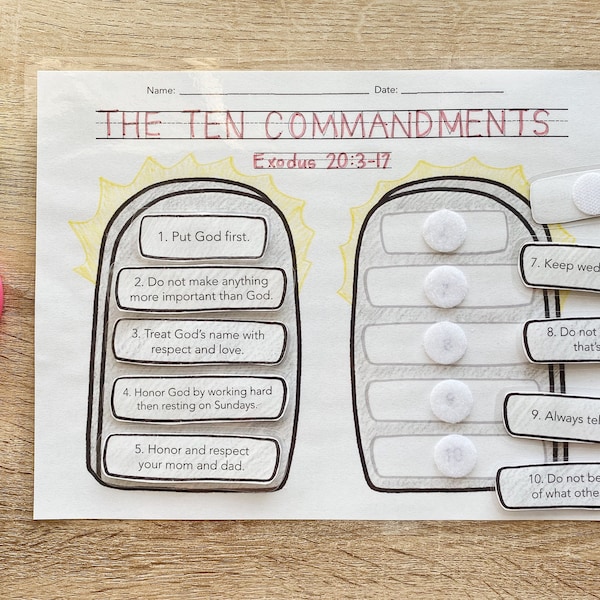 Name: Date:
THE TEN COMMANDMENTS
Exodus 20:3-17
1. Put God first.
2. Do not make anything
more important than God.
3. Treat God's name with
respect and love.
4. Honor God by working hard
then resting on Sundays.
5. Honor and respect
your mom and dad.
10
7. Keep wed
8. Do not
that's
9. Always tel
10. Do not be
of what othe